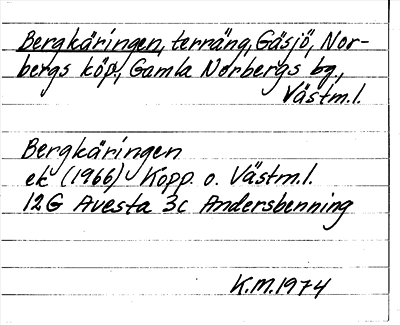 Bergkäringen, ternäng, Gäsjö, Nor-
bergs köp., Gamla Norbergs bg.,
Västm.l.
Bergkäringen
ek (1966) Kopp. o. Västm.l.
12G Avesta 3c Andersbenning
K.M.1974